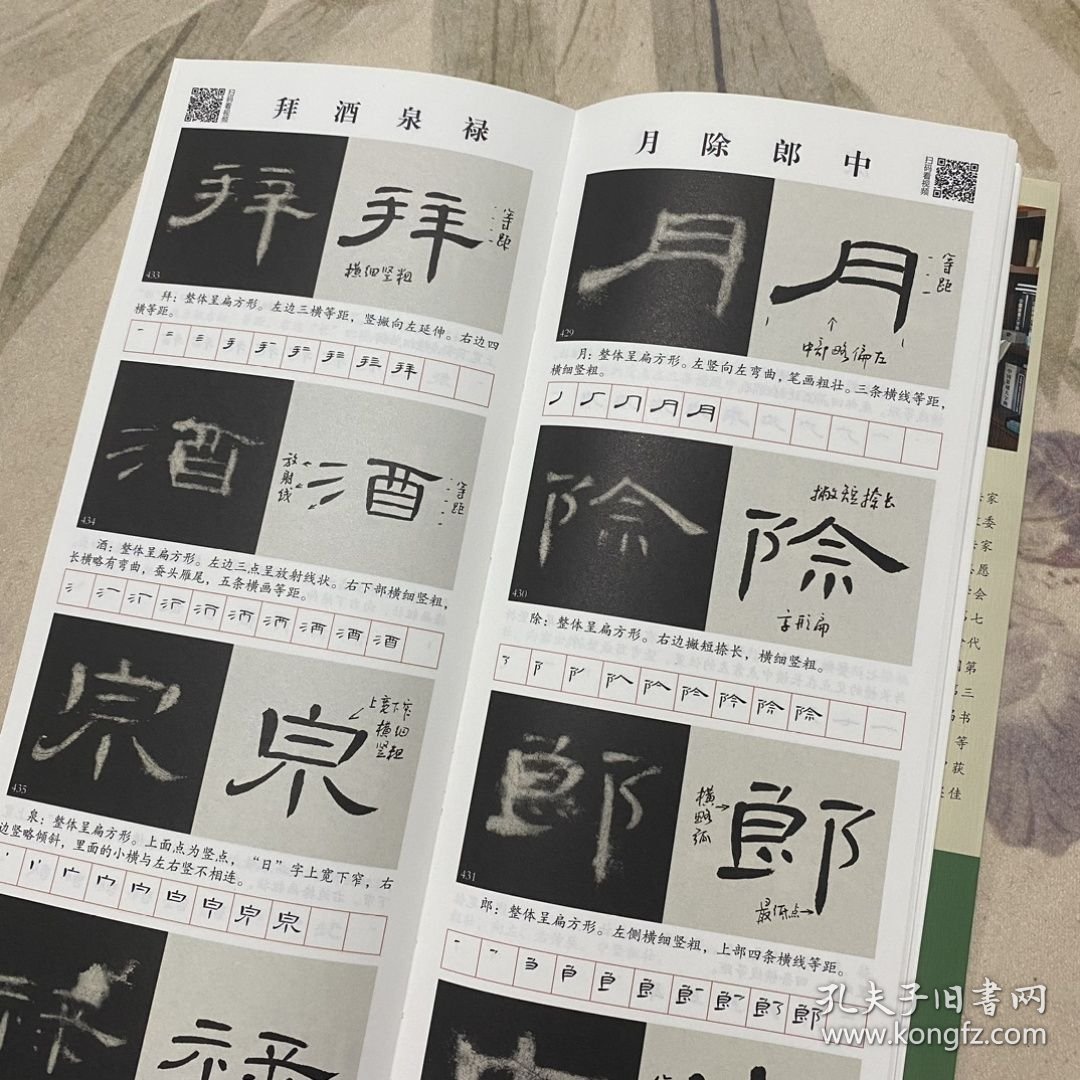 扫码看视频
拜 酒 泉 禄
拜
433
横细竖粗
等距
拜：整体呈扁方形。左边三横等距，竖撇向左延伸。右边四
横等距。
酒
434
放射线
等距
酒：整体呈扁方形。左边三点呈放射线状。右下部横细竖粗，
长横略有弯曲，蚕头雁尾，五条横画等距。
泉
435
上宽下窄
横细
竖粗
泉：整体呈扁方形。上面点为竖点，“日”字上宽下窄，右
边竖略倾斜，里面的小横与左右竖不相连。
禄
月 除 郎 中
扫码看视频
月
429
等距
中部略偏左
月：整体呈扁方形。左竖向左弯曲，笔画粗壮。三条横线等距，
横细竖粗。
除
430
撇短捺长
字形扁
除：整体呈扁方形。右边撇短捺长，横细竖粗。
郎
431
横略弧
最低点
郎：整体呈扁方形。左侧横细竖粗，上部四条横线等距。
家
委
家
愿
会
七
代
第
三
书
等
获
佳
孔夫子旧书网
www.kongfz.com